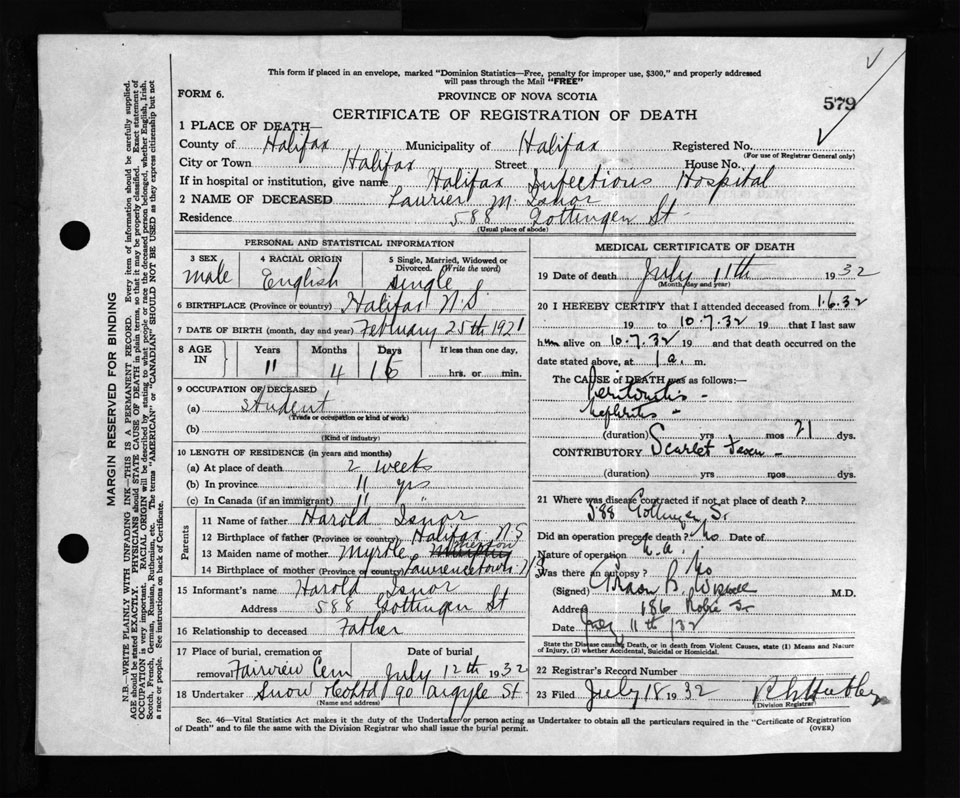 This form if placed in an envelope, marked "Dominion Statistics—Free, penalty for improper use, $300," and properly addressed
will pass through the Mail "FREE"
FORM 6.
PROVINCE OF NOVA SCOTIA
579
CERTIFICATE OF REGISTRATION OF DEATH
1 PLACE OF DEATH—
County of Halifax Municipality of Halifax Registered No.
(For use of Registrar General only)
City or Town Halifax Street House No.
If in hospital or institution, give name Halifax Infectious Hospital
2 NAME OF DECEASED Laurier M. Isnor
Residence 588 Gottingen St
(Usual place of abode)
PERSONAL AND STATISTICAL INFORMATION
3 SEX 4 RACIAL ORIGIN 5 Single, Married, Widowed or
Divorced. (Write the word)
male English Single
6 BIRTHPLACE (Province or country) Halifax N.S.
7 DATE OF BIRTH (month, day and year) February 25th 1921
8 AGE IN Years Months Days If less than one day,
11 4 16 hrs. or min.
9 OCCUPATION OF DECEASED
(a) Student
(Trade or occupation or kind of work)
(b)
(Kind of industry)
10 LENGTH OF RESIDENCE (in years and months)
(a) At place of death 2 weeks
(b) In province 11 yrs
(c) In Canada (if an immigrant) 11 "
Parents
11 Name of father Harold Isnor
12 Birthplace of father (Province or country) Halifax N.S
13 Maiden name of mother Myrtle
14 Birthplace of mother (Province or country) Lawrencetown N S
15 Informant's name Harold Isnor
Address 588 Gottingen St
16 Relationship to deceased Father
17 Place of burial, cremation or removal Date of burial
Fairview Cem July 12th 1932
18 Undertaker Snow & Co Ltd 90 Argyle St
(Name and address)
MEDICAL CERTIFICATE OF DEATH
19 Date of death July 11th 1932
(Month, day and year)
20 I HEREBY CERTIFY that I attended deceased from 1.6.32
19 to 10.7.32 19 that I last saw
him alive on 10.7.32 19 and that death occurred on the
date stated above, at 1 a. m.
The CAUSE of DEATH was as follows:—
Peritonitis -
Nephritis -
(duration) yrs mos 21 dys.
CONTRIBUTORY Scarlet Fever -
(duration) yrs mos dys.
21 Where was disease contracted if not at place of death?
588 Gottingen St
Did an operation precede death? No Date of
Nature of operation n.a.
Was there an autopsy? No
(Signed) B. M.D.
Address 186 Robie St
Date July 11th 132
State the Disease causing Death, or in death from Violent Causes, state (1) Means and Nature
of Injury, (2) whether Accidental, Suicidal or Homicidal.
22 Registrar's Record Number
23 Filed July 18 1932
Division Registrar
Sec. 46—Vital Statistics Act makes it the duty of the Undertaker or person acting as Undertaker to obtain all the particulars required in the "Certificate of Registration
of Death" and to file the same with the Division Registrar who shall issue the burial permit.
(OVER)
MARGIN RESERVED FOR BINDING
N.B.—WRITE PLAINLY WITH UNFADING INK—THIS IS A PERMANENT RECORD. Every item of information should be carefully supplied.
AGE should be stated EXACTLY. PHYSICIANS should STATE CAUSE OF DEATH in plain terms, so that it may be properly classified. Exact statement of
OCCUPATION is very important. RACIAL ORIGIN will be described by stating to what people or race the deceased person belonged, whether English, Irish,
Scotch, French, German, Russian, Ruthenian, etc. The terms "AMERICAN" or "CANADIAN" SHOULD NOT BE USED as they express citizenship but not
a race or people. See instructions on back of Certificate.